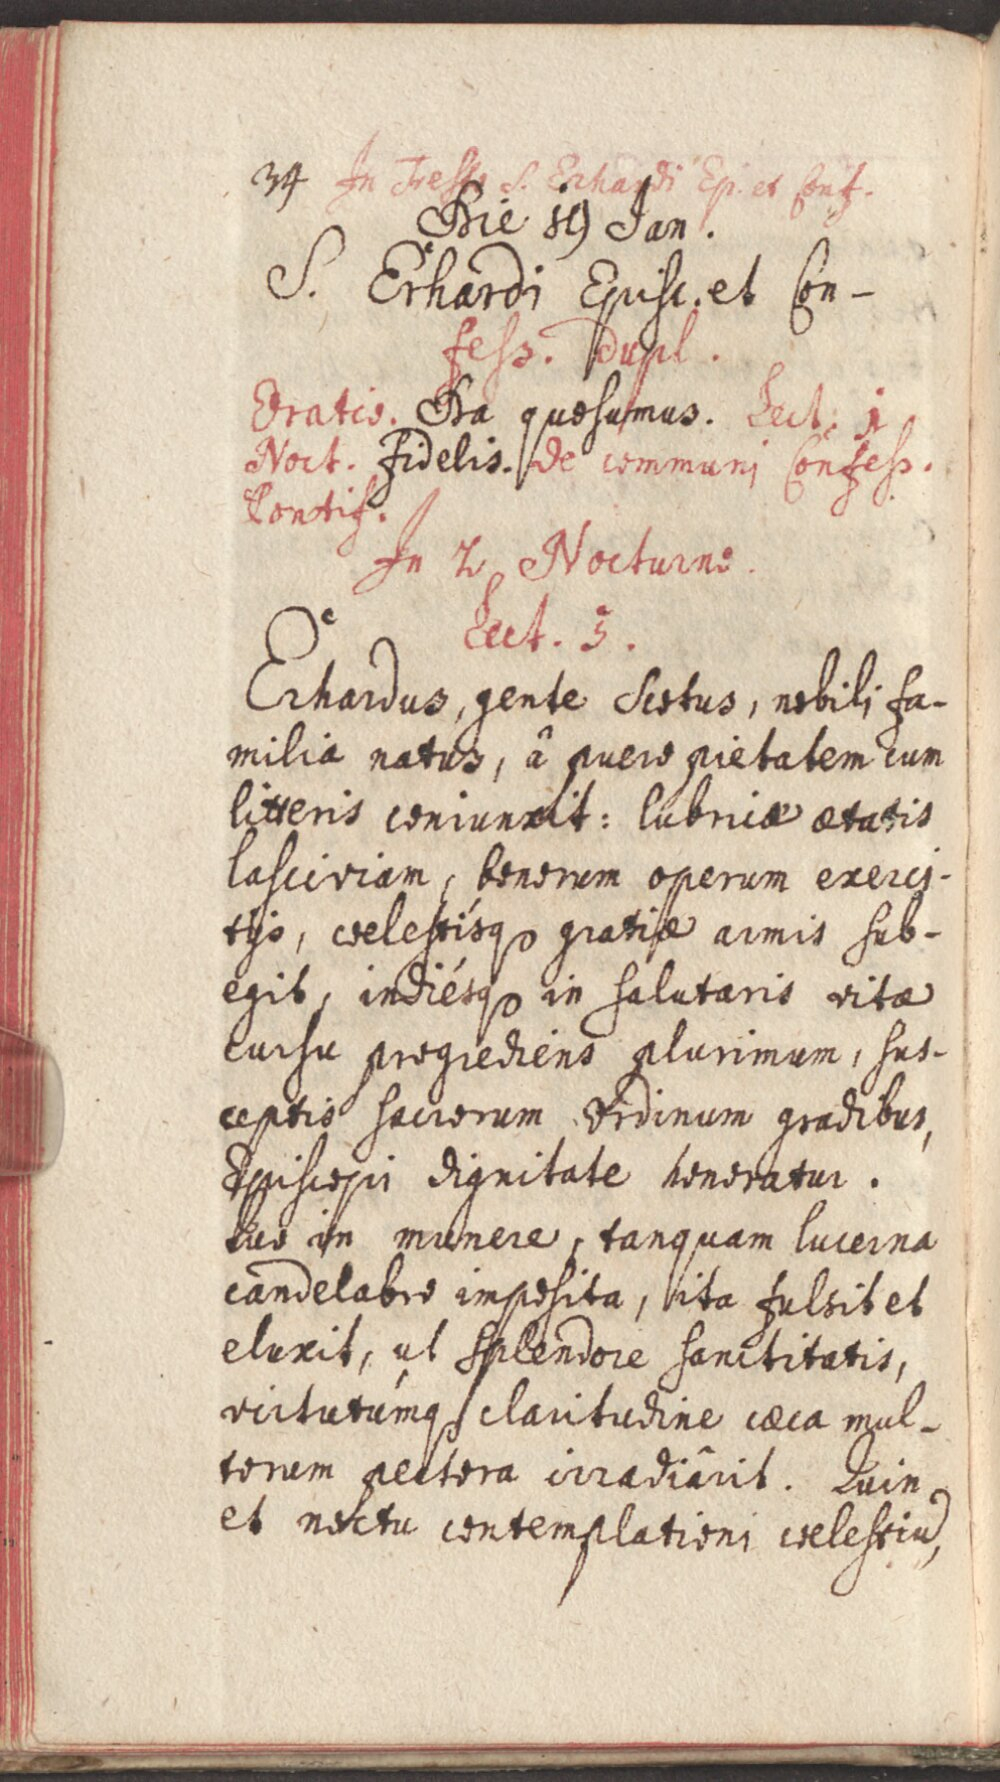 34 In Festo S. Erhardi Ep. et Conf.
Die 19 Jan.
S. Erhardi Episc. et Con-
fess. dupl.
Oratio. Da quæsumus. Lect. 1
Noct. Fidelis. de communi Confess.
Pontif.
In 2 Nocturno.
Lect. 5.
Erhardus, gente Scotus, nobili fa-
milia natus, â puero pietatem cum
litteris coniunxit: lubricæ ætatis
lasciviam, bonorum operum exerci-
tijs, cœlestísq; gratiæ armis sub-
egit, indiésq; in salutaris vitæ
cursu progrediens plurimum, sus-
ceptis sacrorum Ordinum gradibus,
Episcopi dignitate honoratur.
Quo in munere, tanquam lucerna
candelabro imposita, ita fulsit et
eluxit, ut splendore sanctitatis,
virtutúmq; claritudine cæca mul-
torum pectora irradiârit. Quin
et noctu contemplationi cœlestiũ,